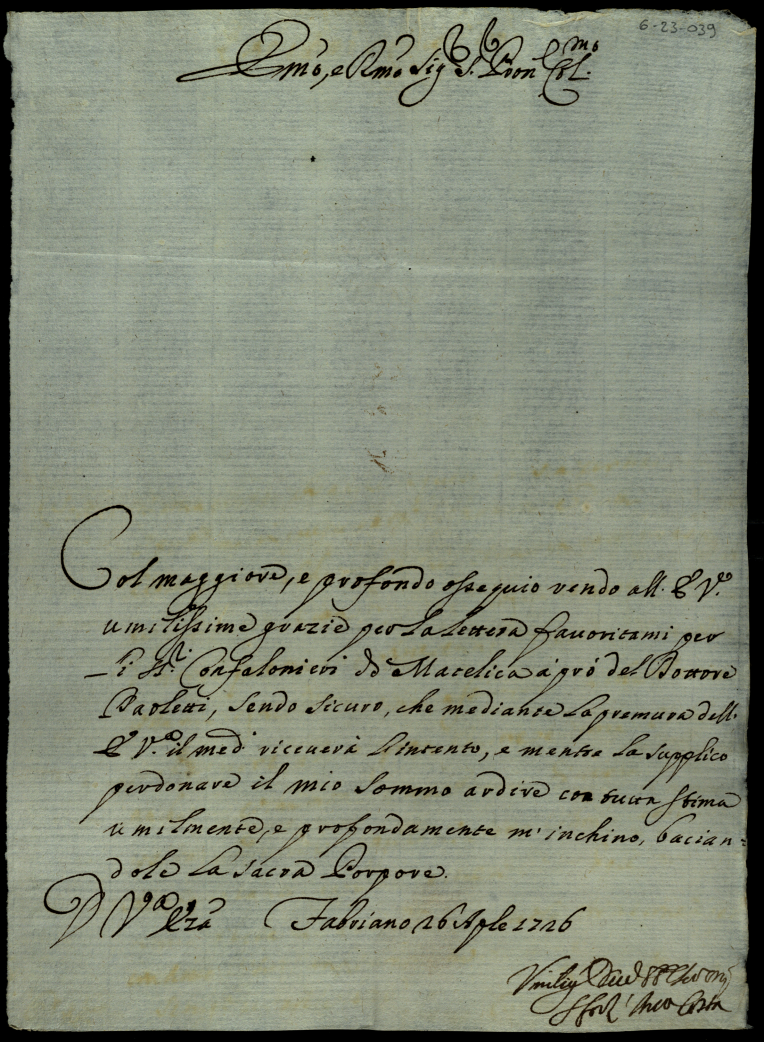 6-23-039
Emo, e Rmo Sig. S. Pron Col.mo
Col maggiore, e profondo ossequio rendo all. E V.a
umilissime grazie per la lettera favoritami per
li SS.ri Confalonieri di Matelica a prò del Dottore
Paoletti, sendo sicuro, che mediante la premura dell.
E V.a il med. riceverà l'intento, e mentre la supplico
perdonare il mio sommo ardire con tutta stima
umilmente, e profondamente m'inchino, bacian=
dole la sacra Porpore.
D V.a Eza Fabriano 26 Aple 1726